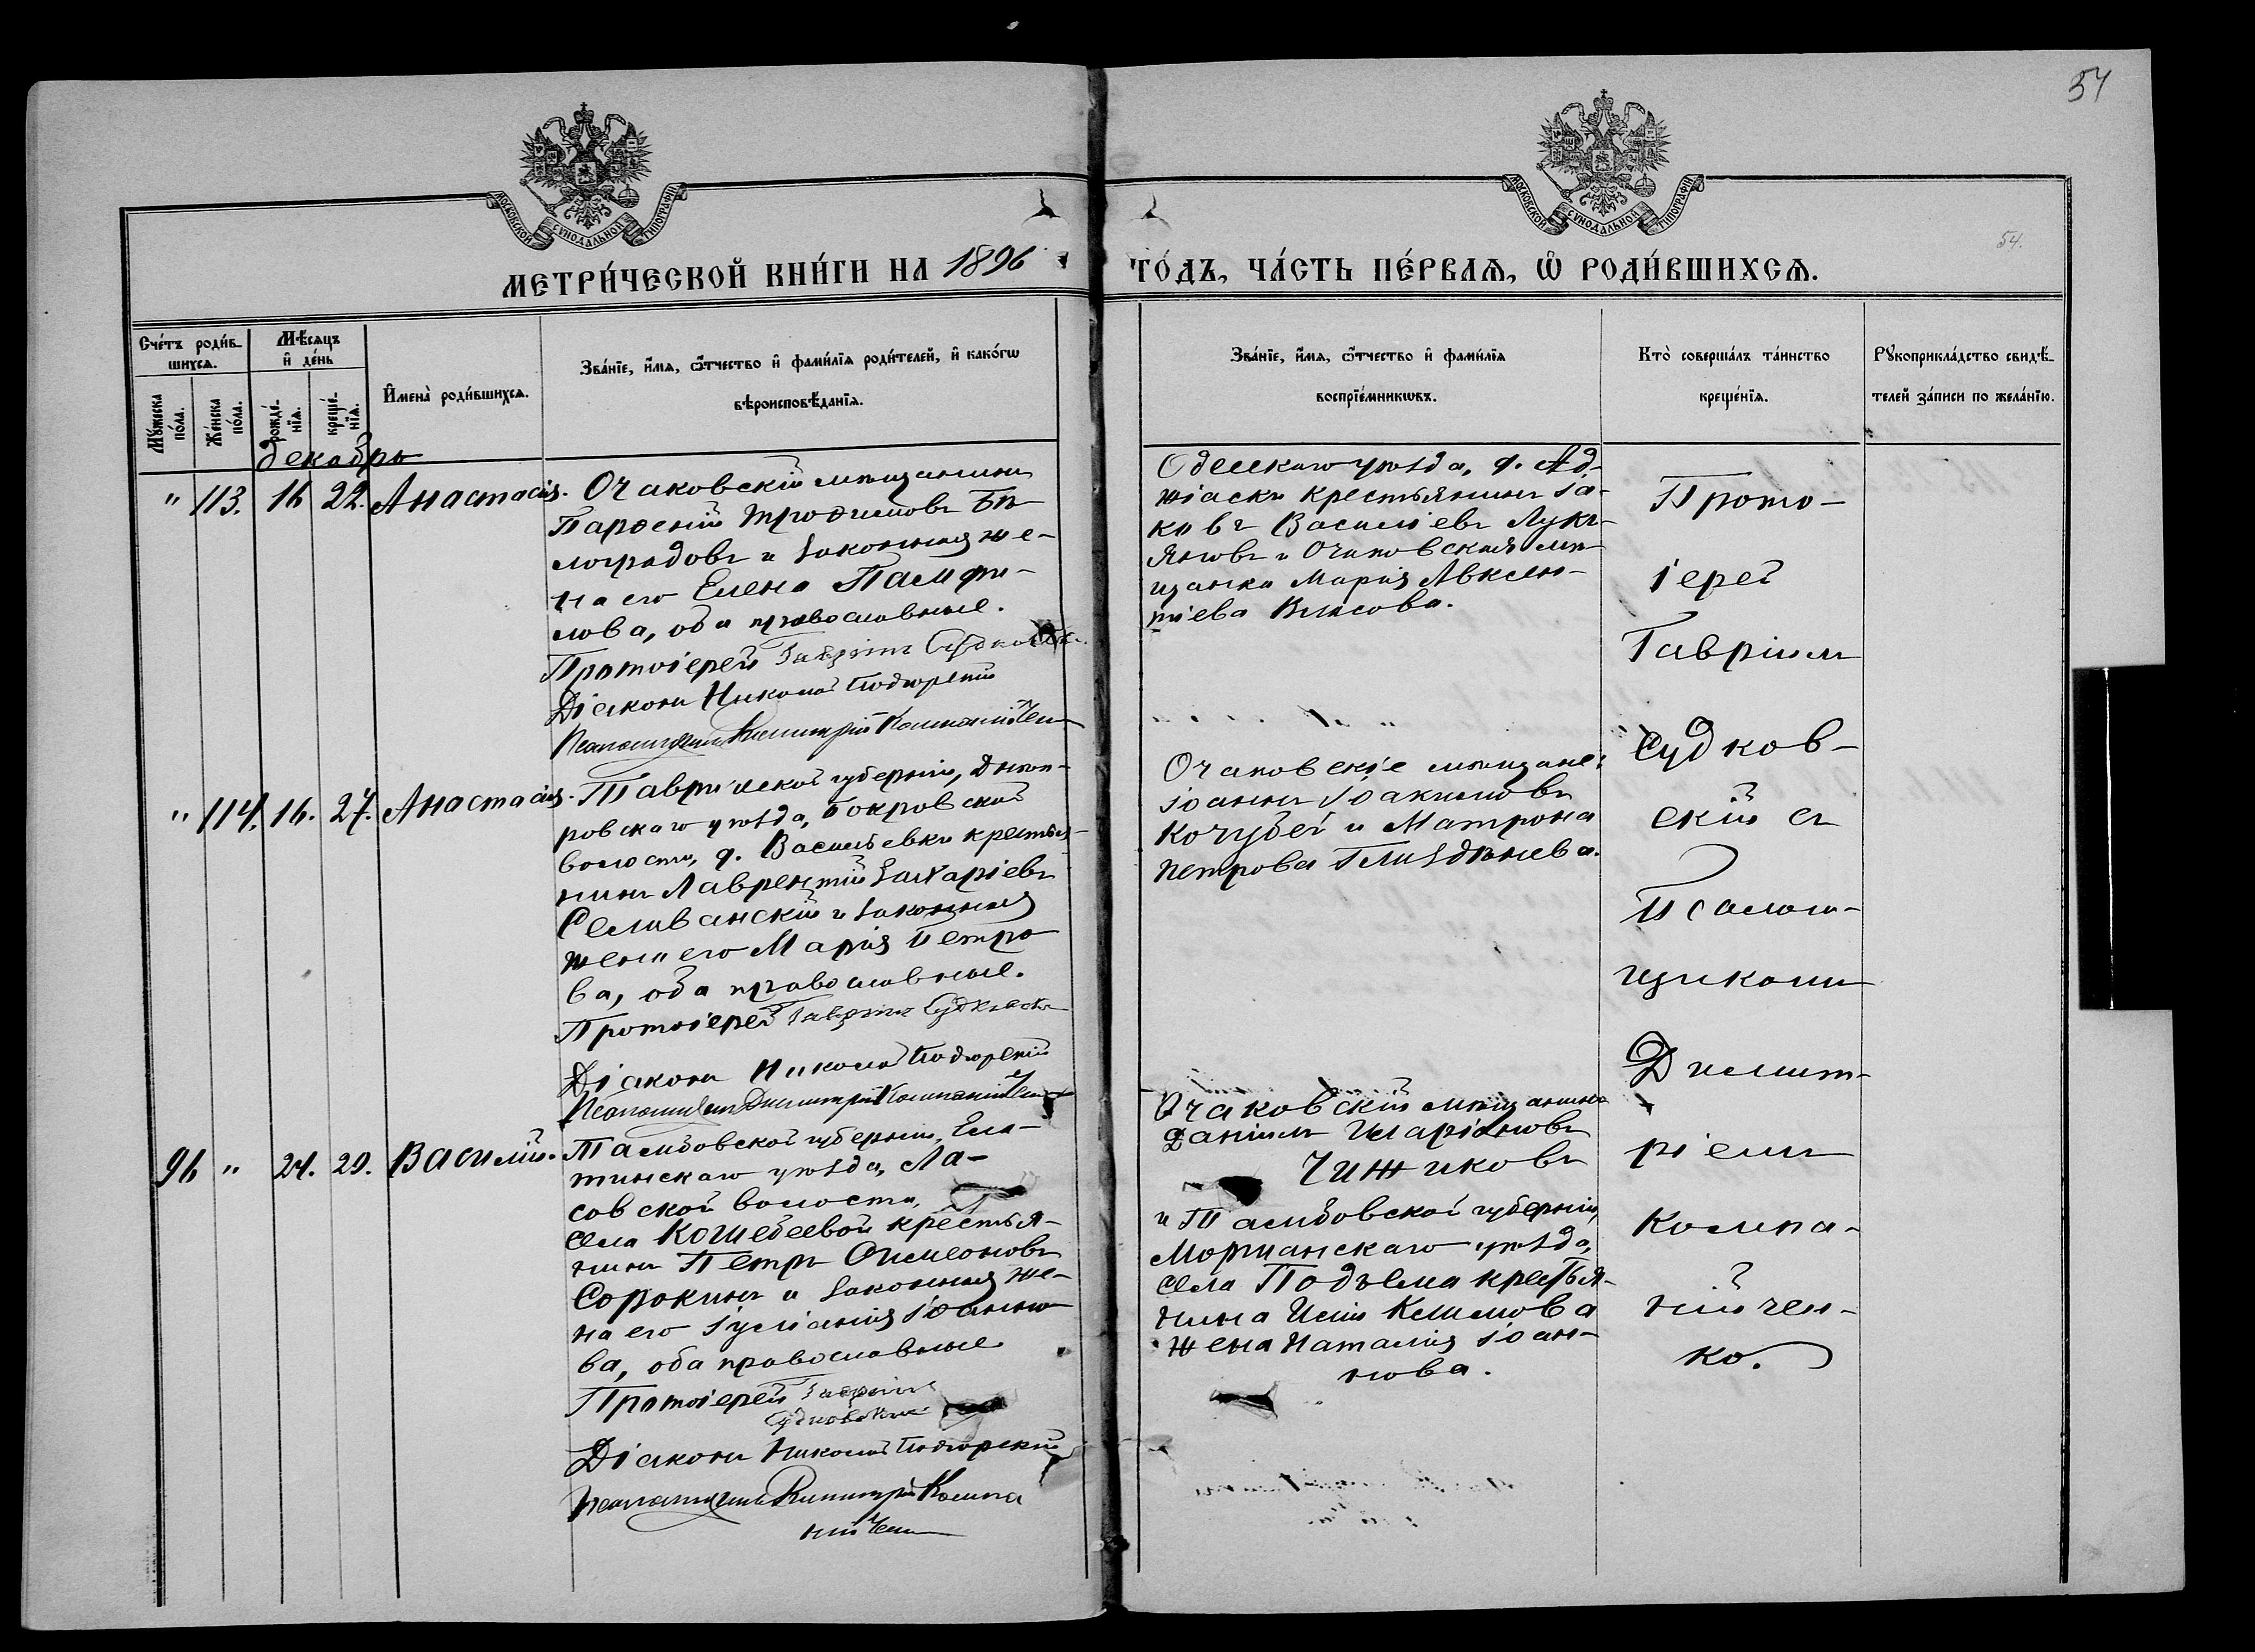 54
54.
МОСКОВСКОЙ СѴНОДАЛЬНОЙ ТИПОГРАФІИ
МОСКОВСКОЙ СѴНОДАЛЬНОЙ ТИПОГРАФІИ
МЕТРИ́ЧЕСКОЙ КНИ́ГИ НА 1896
ГО́ДЪ, ЧА́СТЬ ПЕ́РВАѦ, Ѡ РОДИ́ВШИХСѦ.
Сче́тъ роди́в-
шихсѧ.
Мꙋжеска по́ла.
Же́нска по́ла.
Мѣ́сѧцъ
и҆ де́нь
рожде́нїѧ.
креще́нїѧ.
И҆мена̀ роди́вшихсѧ.
Зва́нїе, и҆́мѧ, ѻ҆́тчество и҆ фами́лїѧ роди́телей, и҆ како́гѡ
вѣроисповѣ́данїѧ.
Зва́нїе, и҆́мѧ, ѻ҆́тчество и҆ фами́лїѧ
воспрїе́мникѡвъ.
Кто̀ соверша́лъ та́инство
креще́нїѧ.
Рꙋкоприкла́дство свидѣ́-
телей за́писи по жела́нїю.
декабрь
" 113. 16 22. Анастасія.
Очаковскій мѣщанинъ
Парѳеній Трофимовъ Бѣ-
лоградовъ и законная же-
на его Елена Памфи-
лова, оба православные.
Протоіерей Гавріилъ Судковскій
Діаконъ Николай Подгорскій
Псаломщикъ Димитрій Компанійчен
Одесскаго уѣзда, д. Ад-
жіаски крестьянинъ Іа-
ковъ Василіевъ Лукъ-
яновъ и Очаковская мѣ-
щанка Марія Авксен-
тіева Власова.
" 114. 16. 27. Анастасія.
Таврической губерніи, Днѣп-
ровскаго уѣзда, Покровской
волости, д. Васильевки крестья-
нинъ Лаврентій Захаріевъ
Селиванскій и законная
жена его Марія Петро
ва, оба православные.
Протоіерей Гавріилъ Судковскій
Діаконъ Николай Подгорскій
Псаломщикъ Димитрій Компанійчен
Очаковскіе мѣщане:
Іоаннъ Іоакимовъ
Кочубей и Матрона
Петрова
96 " 24. 29. Василій.
Тамбовской губерніи, Ела-
тинскаго уѣзда, Ла-
совской волости,
села Кошебеевой крестья-
нинъ Петръ Симеоновъ
Сорокинъ и законная же-
на его Іуліанія Іоанно
ва, оба православные
Протоіерей Гавріилъ
Судковскій
Діаконъ Николай Подгорскій
Псаломщикъ Димитрій Компа
нійчен
Очаковскій мѣщанинъ
Даніилъ Иларіоновъ
Чижиковъ
и Тамбовской губерніи,
Моршанскаго уѣзда,
села Подъема крестья-
нина Климова
жена Наталія Іоан-
нова.
Прото-
іерей
Гавріилъ
Судков-
скій съ
Псалом-
щикомъ
Димит-
ріемъ
Компа-
нійчен-
ко.